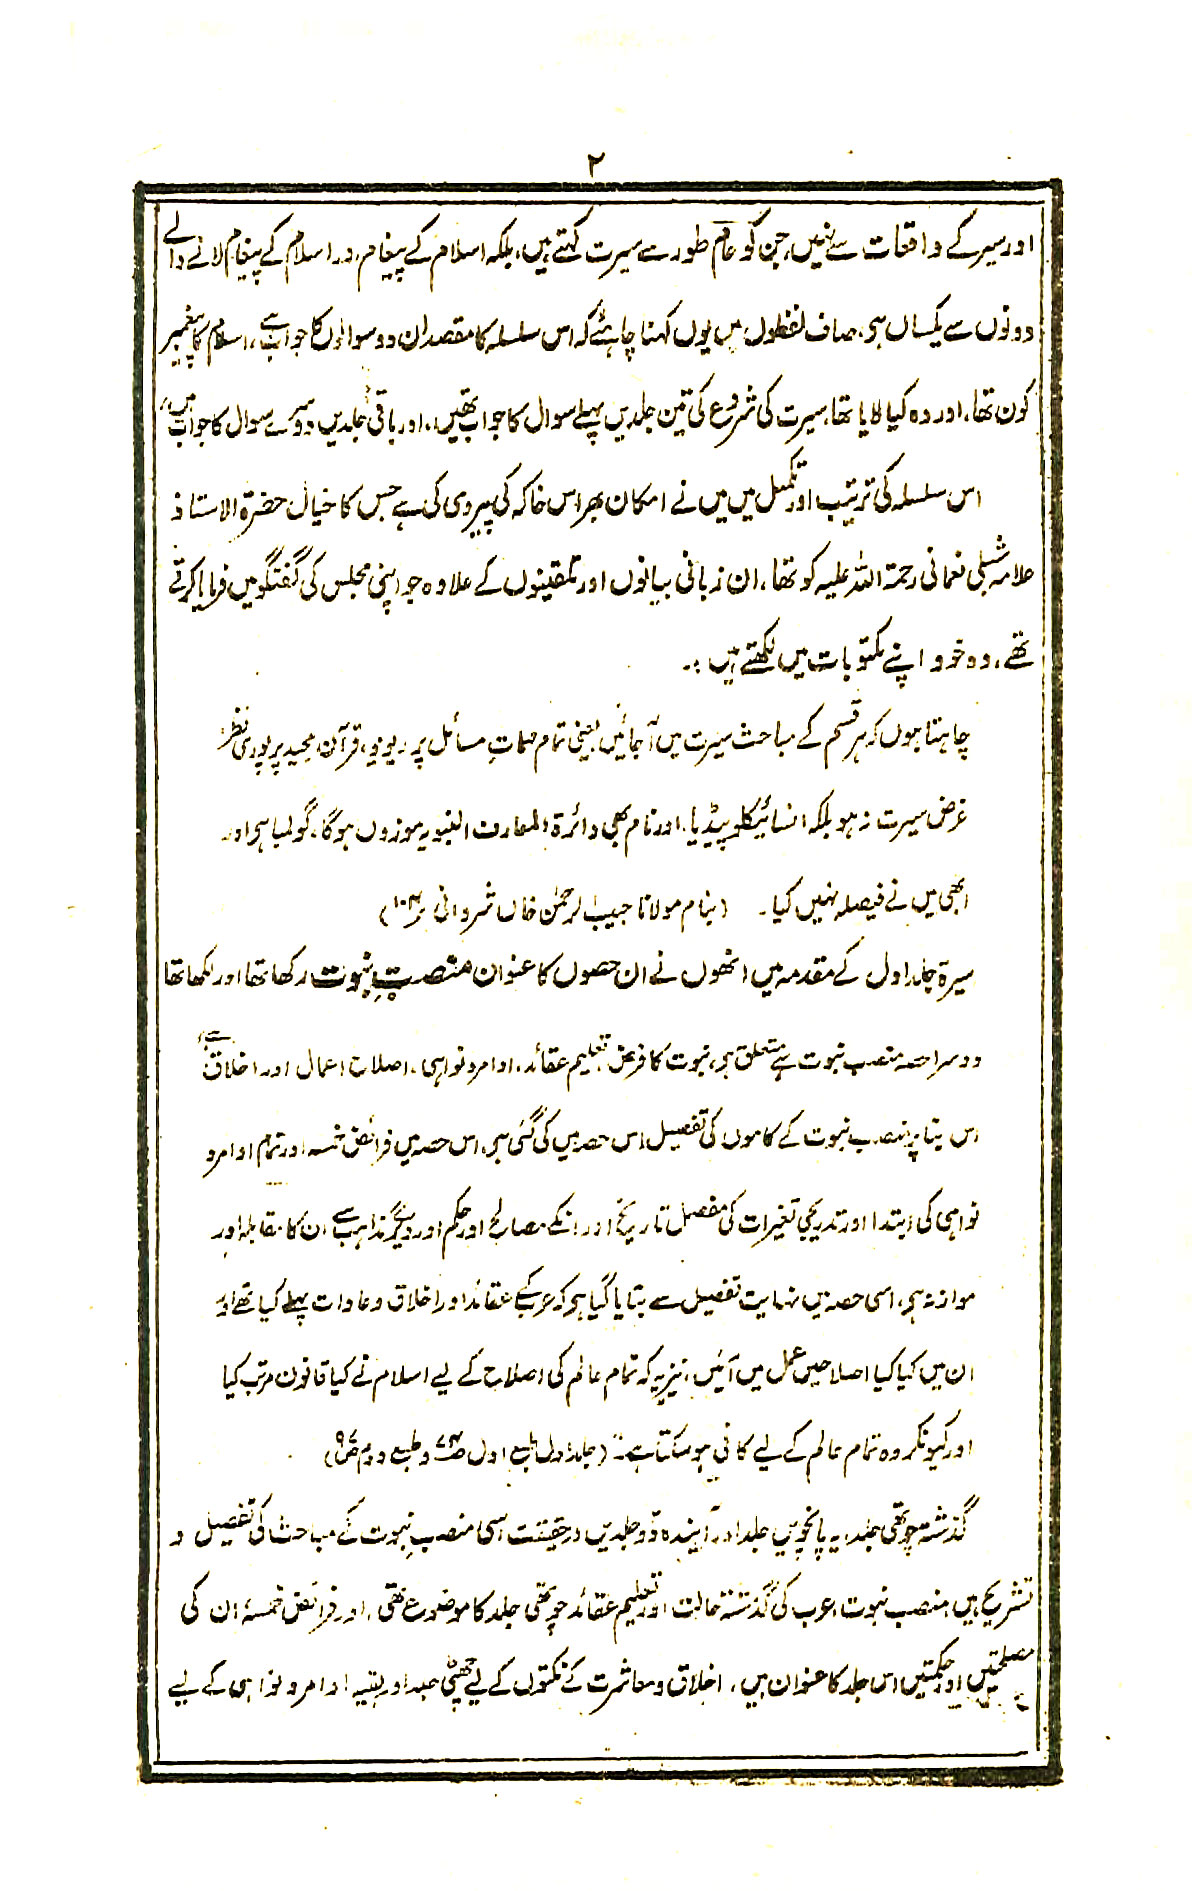 ۲
اور سیر کے واقعات سے نہیں، جن کو عام طور سے سیرت کہتے ہیں، بلکہ اسلام کے پیغام اور اسلام کے پیغام لانے والے
دونوں سے یکساں ہی، صاف لفظوں میں یوں کہنا چاہئے کہ اس سلسلہ کا مقصد ان دو سوالوں کا جواب ہے، اسلام کا پیغمبر
کون تھا، اور وہ کیا لایا تھا، سیرت کی شروع کی تین جلدیں پہلے سوال کا جواب تھیں، اور باقی جلدیں دوسرے سوال کا جواب ہیں،
اس سلسلہ کی ترتیب اور تکمیل میں میں نے امکان بھر اس خاکہ کی پیروی کی ہے جس کا خیال حضرۃ الاستاذ
علامہ شبلی نعمانی رحمۃ اللہ علیہ کو تھا، ان زبانی بیانوں اور تلقینوں کے علاوہ جو اپنی مجلس کی گفتگو میں فرمایا کرتے
تھے، وہ خود اپنے مکتوبات میں لکھتے ہیں :۔
چاہتا ہوں کہ ہر قسم کے مباحث سیرت میں آجائیں یعنی تمام مہاتِ مسائل پر ریویو، قرآن مجید پر پوری نظر
غرض سیرت نہ ہو بلکہ انسائیکلوپیڈیا، اور نام بھی دائرۃ المعارف النبویہ موزوں ہوگا، گو لمبا ہی اور
ابھی میں نے فیصلہ نہیں کیا۔ (بنام مولانا حبیب الرحمٰن خاں شروانی
سیرۃ جلد اول کے مقدمہ میں انھوں نے ان حصوں کا عنوان منصبِ نبوت رکھا تھا اور لکھا تھا
دوسرا حصہ منصب نبوت سے متعلق ہی، نبوت کا فرض تعلیم عقائد، اوامر و نواہی، اصلاح اعمال اور اخلاق ہے،
اس بنا پر منصب نبوت کے کاموں کی تفصیل اس حصہ میں کی گئی ہی، اس حصہ میں فرائض خمسہ اور تمام اوامر و
نواہی کی ابتدا اور تدریجی تغیرات کی مفصل تاریخ اور انکے مصالح اور حکم اور دیگر مذاہب سے ان کا مقابلہ اور
موازنہ ہی، اسی حصہ میں نہایت تفصیل سے بتایا گیا ہی کہ عرب کے عقائد اور اخلاق و عادات پہلے کیا تھے اور
ان میں کیا کیا اصلاحیں عمل میں آئیں، نیز یہ کہ تمام عالم کی اصلاح کے لیے اسلام نے کیا قانون مرتب کیا
اور کیونکر وہ تمام عالم کے لیے کافی ہو سکتا ہے۔" (جلد اول طبع اول ص۷۴ و طبع دوم ص۹۷)
گذشتہ چوتھی جلد، یہ پانچویں جلد اور آیندہ دو جلدیں درحقیقت اسی منصبِ نبوت کے مباحث کی تفصیل و
تشریح ہیں، منصب نبوت، عرب کی گذشتہ حالت اور تعلیم عقائد چوتھی جلد کا موضوع تھی، اور فرائض خمسہ، ان کی
مصلحتیں اور حکمتیں اس جلد کا عنوان ہیں، اخلاق و معاشرت کے نکتوں کے لیے چھٹی جلد اور بقیہ اوامر و نواہی کے لیے